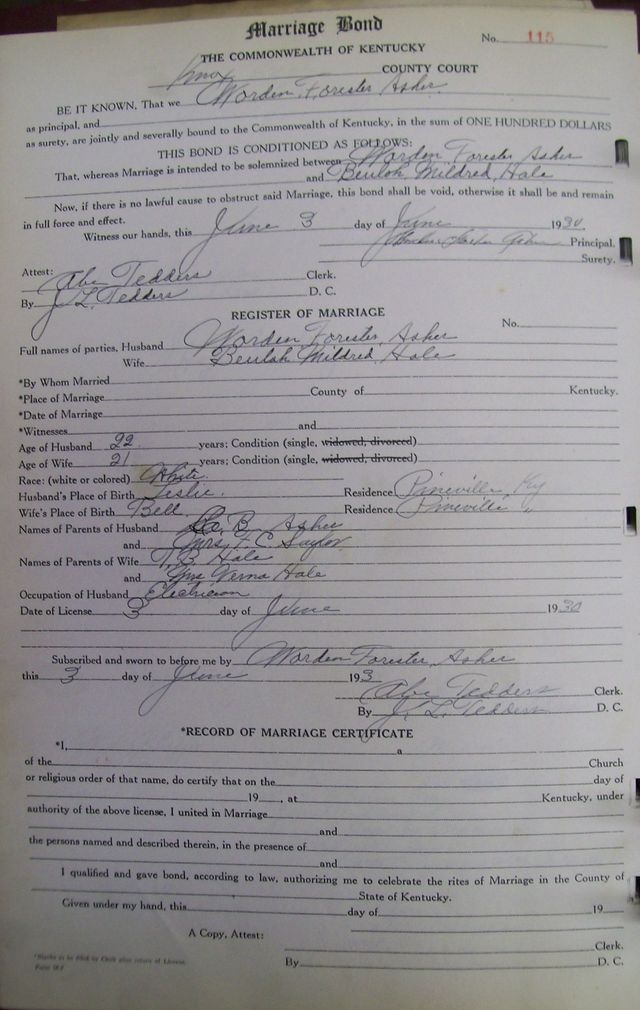 Marriage Bond
No. 115
THE COMMONWEALTH OF KENTUCKY
Knox COUNTY COURT
BE IT KNOWN, That we Worden Forester Asher
as principal, and
as surety, are jointly and severally bound to the Commonwealth of Kentucky, in the sum of ONE HUNDRED DOLLARS
THIS BOND IS CONDITIONED AS FOLLOWS:
That, whereas Marriage is intended to be solemnized between Worden Forester Asher
and Beulah Mildred Hale
Now, if there is no lawful cause to obstruct said Marriage, this bond shall be void, otherwise it shall be and remain
in full force and effect.
Witness our hands, this June 3 day of June 1930
Asher Principal.
Surety.
Attest:
Abe Tedders Clerk.
By J. L. Tedders D. C.
REGISTER OF MARRIAGE
No.
Full names of parties, Husband Worden Forester Asher
Wife Beulah Mildred Hale
*By Whom Married
*Place of Marriage County of Kentucky.
*Date of Marriage
*Witnesses and
Age of Husband 22 years; Condition (single, widowed, divorced)
Age of Wife 21 years; Condition (single, widowed, divorced)
Race: (white or colored) White
Husband's Place of Birth Leslie. Residence Pineville Ky
Wife's Place of Birth Bell Residence Pineville "
Names of Parents of Husband B. Asher
and Mrs. F. C. Saylor
Names of Parents of Wife B Hale
and Verna Hale
Occupation of Husband Electrician
Date of License 3 day of June 1930
Subscribed and sworn to before me by Worden Forester Asher
this 3 day of June 193
Abe Tedders Clerk.
By J. L. Tedders D. C.
*RECORD OF MARRIAGE CERTIFICATE
*I, a
of the Church
or religious order of that name, do certify that on the day of
19 , at Kentucky, under
authority of the above license, I united in Marriage
and
the persons named and described therein, in the presence of
and
I qualified and gave bond, according to law, authorizing me to celebrate the rites of Marriage in the County of
State of Kentucky.
Given under my hand, this day of 19
A Copy, Attest:
Clerk.
*Blanks to be filled by Clerk after return of License.
By D. C.